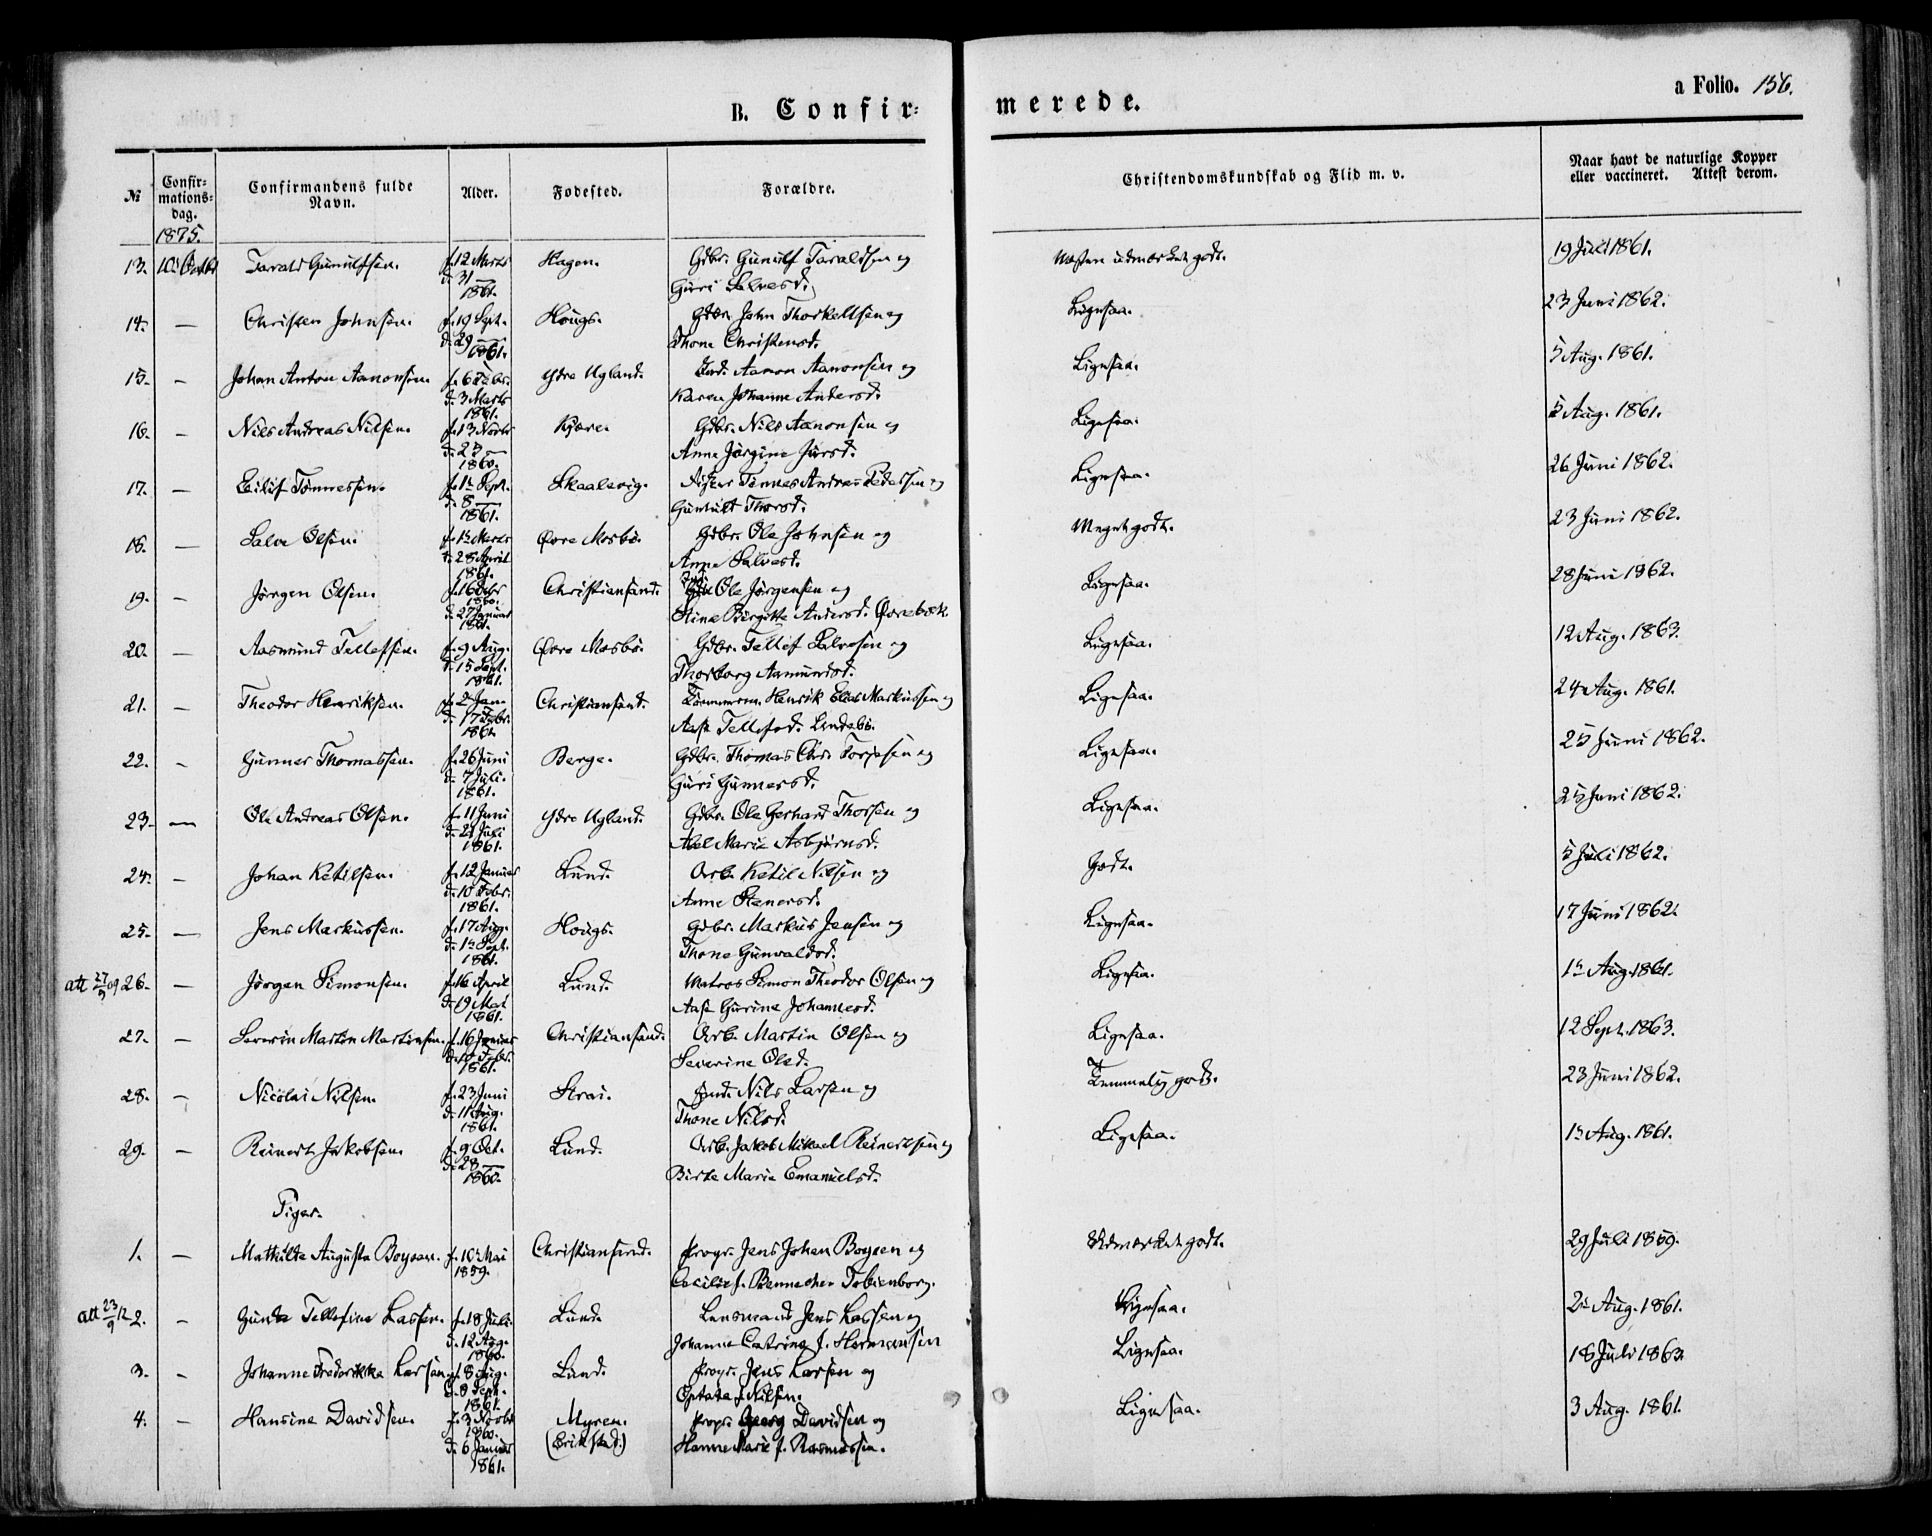 a Folio. 156.
B. Confir- merede.
№ Confir-mations-dag. Confirmandens fulde Navn. Alder. Fødested. Forældre. Christendomskundskab og Flid m. v. Naar havt de naturlige Kopper eller vaccineret. Attest derom.
1875.
13. 10. Octbr Tarald Gunulfsen. f. 12 Marts Hagen. Gdbr. Gunulf Taraldsen og Næsten udmærket godt. 19 Juli 1861.
d. 31 — 1861. Guri Salvesd.
14. — Christen Johnsen. f. 19 Sept. Hougs. Gdbr. John Thorkeltsen og Ligesaa. 23 Juni 1862.
d. 29 — 1861. Thone Christensd.
15. — Johan Anton Aanonsen. f. 6 Febr. Ydre Ugland. Aanon Aanonsen og Ligesaa. 5 Aug. 1861.
d. 3 Marts 1861. Karen Johanne Andersd.
16. — Nils Andreas Nilsen. f. 13 Novbr Kjære. Gdbr. Nils Aanonsen og Ligesaa. 5 Aug. 1861.
d. 23 — 1860. Anne Jørgine Jursd.
17. — Eilif Tønnessen. f. 1ste Sept. Skaalevig. Tønnes Andreas Pedersen og Ligesaa. 26 Juni 1862.
d. 8 — 1861. Gunhild Thorsd.
18. — Salve Olsen. f. 1ste Marts Øvre Mosbø. Gdbr. Ole Johnsen og Meget godt. 23 Juni 1862.
d. 28 April 1861. Anne Salvesd.
19. — Jørgen Olsen. f. 16 Octbr 1860. Christiansand. Ole Jørgensen og Ligesaa. 28 Juni 1862.
d. 27 Januar 1861. Stine Birgitte Andersd. Øvrebøk.
20. — Aasmund Tellefsen. f. 9 Aug. Øvre Mosbø. Gdbr. Tellef Salvesen og Ligesaa. 12 Aug. 1863.
d. 15 Sept. 1861. Thorborg Aamundsd.
21. — Theodor Henriksen. f. 2 Jan. Christiansand. Tømmerm. Henrik Elias Markussen og Ligesaa. 24 Aug. 1861.
d. 17 Febr. 1861. Aase Tellefsd. Lindebø.
22. — Gunner Thomassen. f. 26 Juni Berge. Gdbr. Thomas Chr. Torjesen og Ligesaa. 25 Juni 1862.
d. 7 Juli. 1861. Guri Gunnersd.
23. — Ole Andreas Olsen. f. 11 Juni Ydre Ugland. Gdbr. Ole Gerhard Thorsen og Ligesaa. 25 Juni 1862.
d. 21 Juli 1861. Abel Marie Asbjørnsd.
24. — Johan Ketilsen. f. 12 Januar Lund. Arb. Ketil Nilsen og Godt. 5 Juli 1862.
d. 10 Febr. 1861. Anne Stenersd.
25. — Jens Markussen. f. 17 Aug. Hougs. Gdbr. Markus Jensen og Ligesaa. 17 Juni 1862.
d. 1ste Sept. 1861. Thone Gunvaldsd.
att 27/9 09 26. — Jørgen Simonsen. f. 16 April Lund. Matros Simon Theodor Olsen og Ligesaa. 1ste Aug. 1861.
d. 19 Mai 1861. Aase Gurine Johannesd.
27. — Severin Martin Martinsen. f. 16 Januar Christiansand. Arb. Martin Olsen og Ligesaa. 12 Sept. 1863.
d. 10 Febr. 1861. Severine Olsd.
28. — Nicolai Nilsen. f. 23 Juni Strai. Nils Larsen og Temmelig godt. 23 Juni 1862.
d. 11 Aug. 1861. Thone Nilsd.
29. — Reinert Jakobsen. f. 9 Oct. Lund. Arb. Jakob Mikael Reinertsen og Ligesaa. 1ste Aug. 1861.
d. 28 — 1860. Birte Marie Emanuelsd.
Piger.
1. — Mathilde Augusta Boysen. f. 10de Mai 1859. Christiansand. Propr. Jens Johan Boysen og Udmærket godt. 29 Juli 1859.
Cecilie f. Bennechen Tobienborg.
att 23/9 12 2. — Gunda Tellefine Lassen. f. 18 Juli. Lund. Lensmand Jens Lassen og Ligesaa. 2den Aug. 1861.
d. 12 Aug. 1860. Johanne Catrine f. Hermansen
3. — Johanne Frederikke Larsen. f. 8 Aug. Lund. Propr. Jens Larsen og Ligesaa. 18 Juli 1863.
d. 8 Sept. 1861. Optata f. Nilsen.
4. — Hansine Davidsen. f. 3 Novbr 1860. Myren. Propr. Georg Davidsen og Ligesaa. 3 Aug. 1861.
d. 6 Januar 1861. (Erikstad.) Hanne Marie f. Rasmussen.